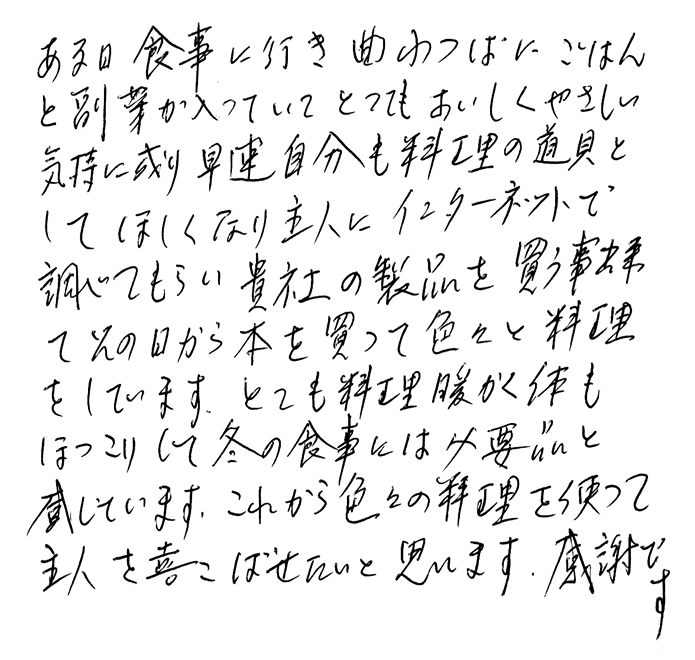 ある日食事に行き曲わっぱにごはん
と副菜が入っていてとってもおいしくやさしい
気持に成り早速自分も料理の道具と
してほしくなり主人にインターネットで
調べてもらい貴社の製品を買う事出来
てその日から本を買って色々と料理
をしています。とても料理暖かく体も
ほっこりして冬の食事には必要品と
感じています。これから色々の料理を使って
主人を喜こばせたいと思います。感謝で
す